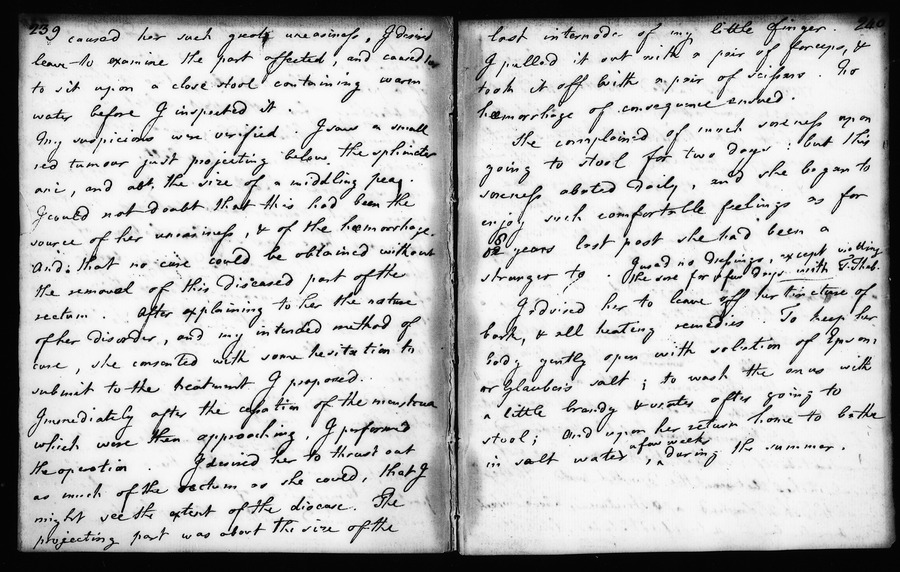 239
caused her such great uneasiness, I desired
leave to examine the part affected, and caused her
to sit upon a close stool containing warm
water before I inspected it.
My suspicions were verified. I saw a small
red tumour just projecting below the sphincter
ani, and abt. the size of a middling pea.
I could not doubt that this had been the
source of her uneasiness, & of the hæmorrhage.
And that no cure could be obtained without
the removal of this diseased part of the
rectum. After explaining to her the nature
of her disorder, and my intended method of
cure, she consented with some hesitation to
submit to the treatment I proposed.
Immediately after the cessation of the menstrua
which were then approaching, I performed
the operation. I desired her to thrust out
as much of the rectum as she could, that I
might see the extent of the disease. The
projecting part was about the size of the
240
last internode of my little finger.
I pulled it out with a pair of forceps, &
took it off with a pair of scissars. No
hæmorrhage of consequence ensued.
She complained of much soreness upon
going to stool for two days: but this
soreness abated daily, and she began to
enjoy such comfortable feelings as for
years last past she had been a
stranger to. I used no dressings, except
the sore for a few days with T. Theb.
I advised her to leave off her tincture of
bark, & all heating remedies. To keep her
body gently open with solution of Epsom
or Glaubers salt; to wash the anus with
a little brandy & water after going to
stool; and upon her return home to bathe
in salt water, a few weeks, during the summer.